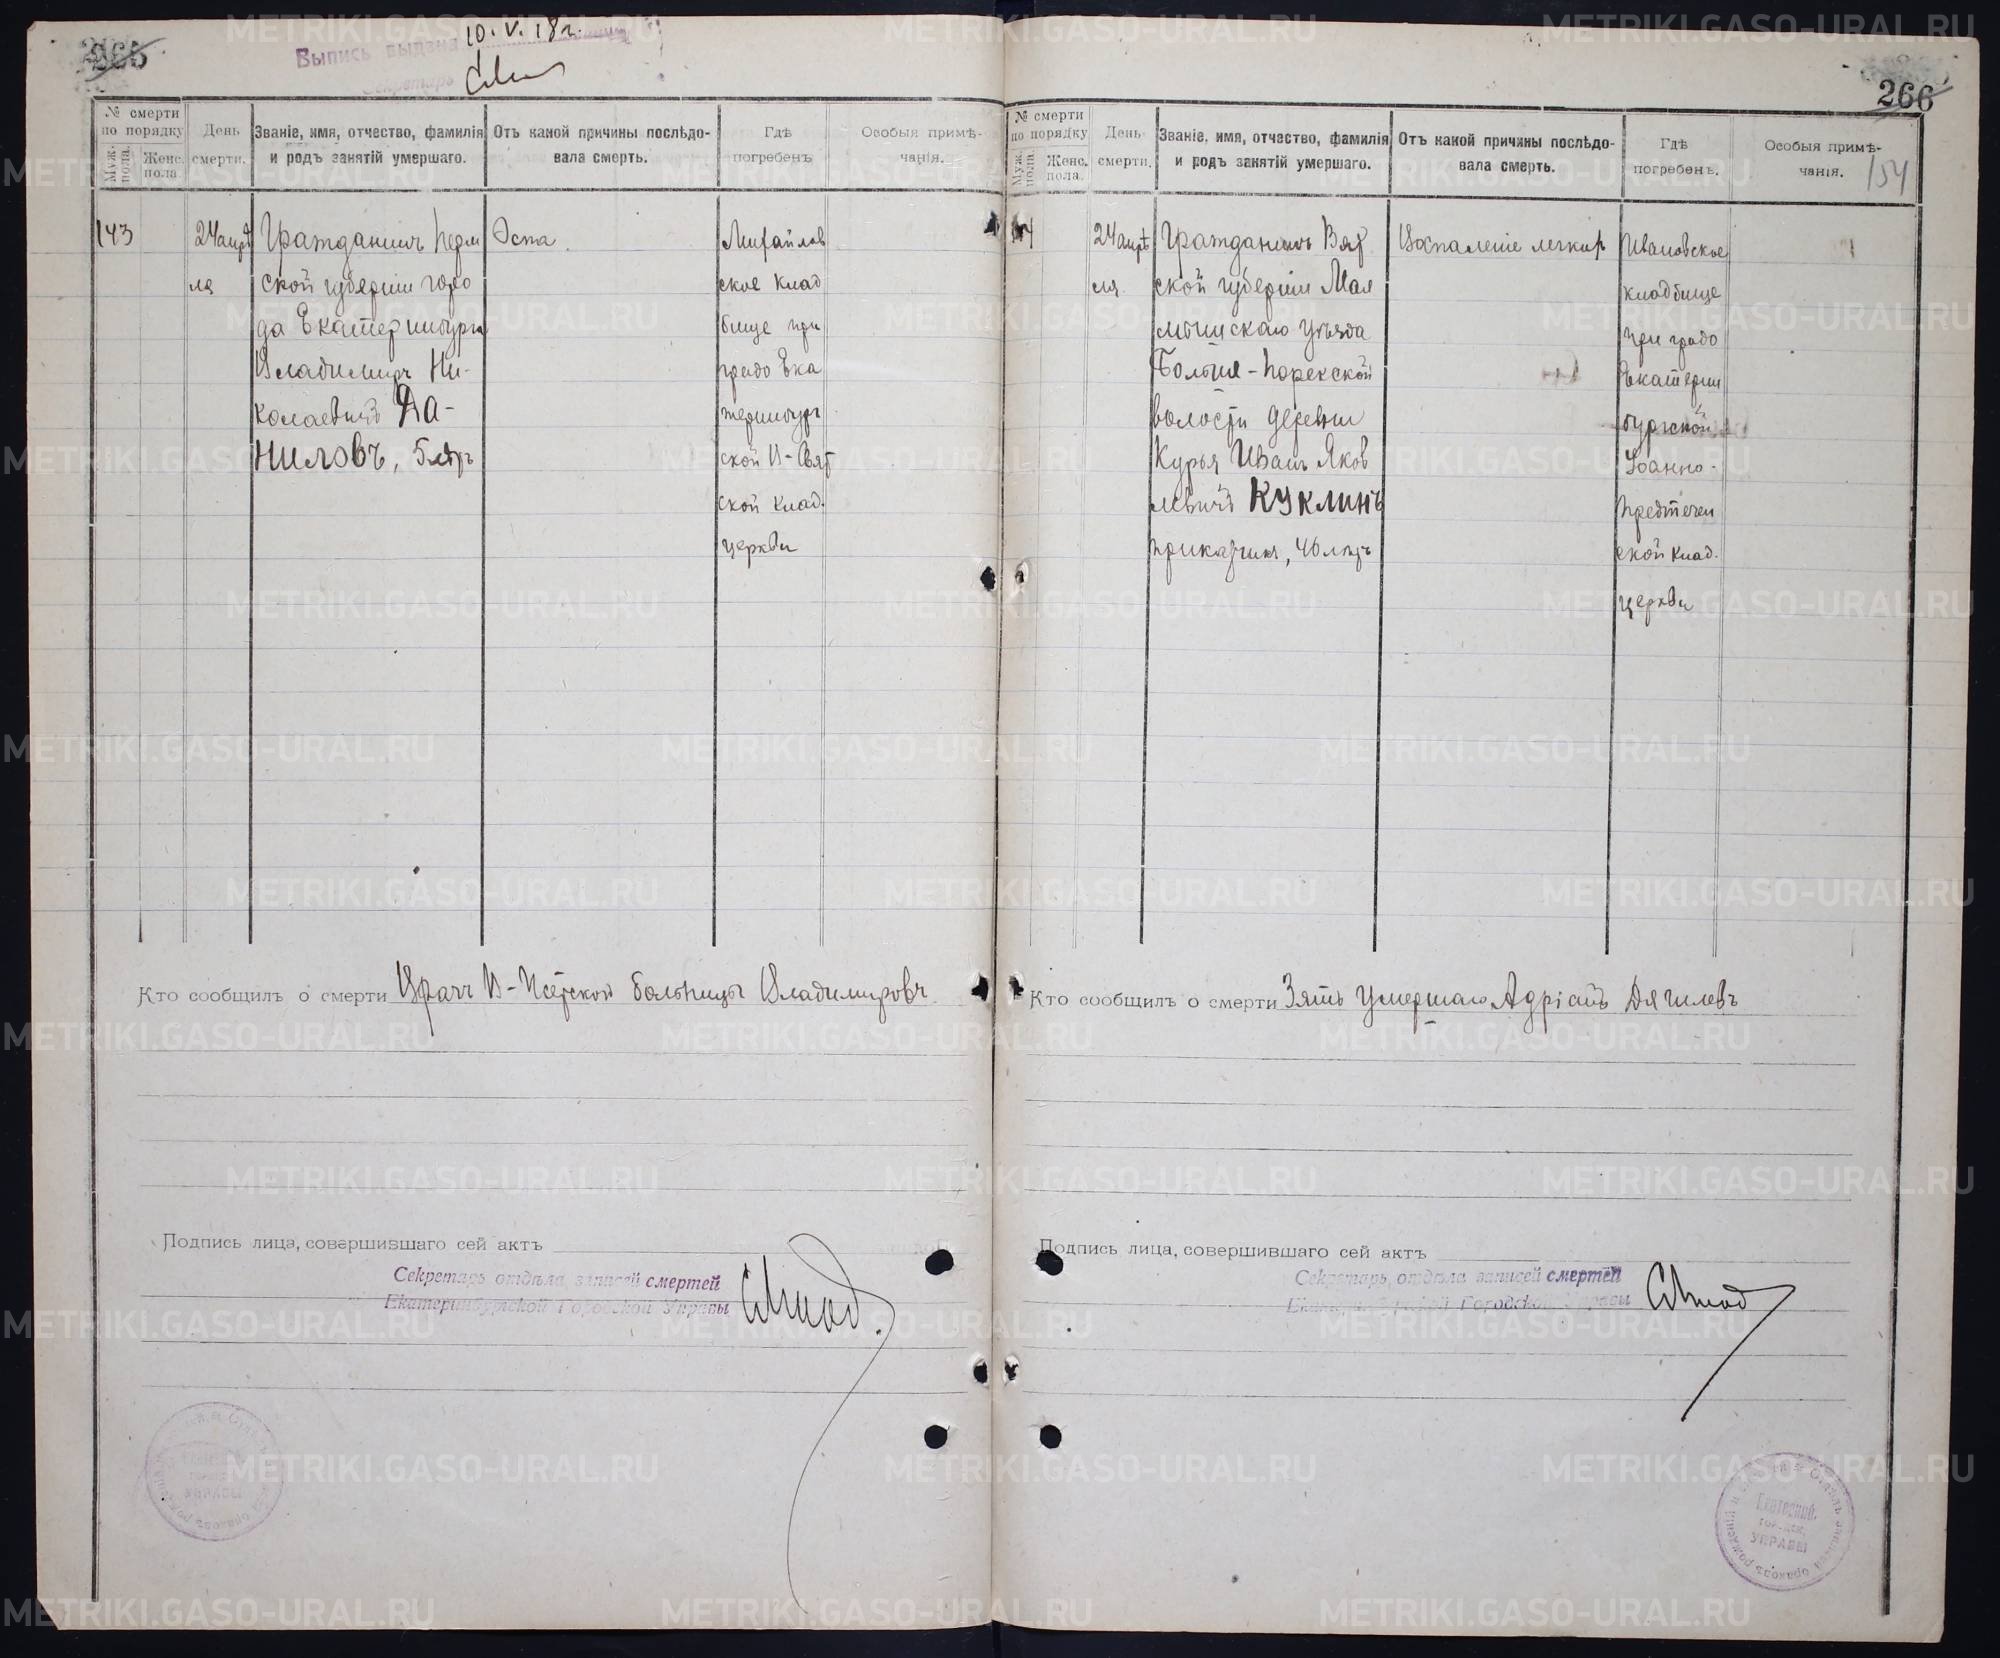 265
Выпись выдана 10.V.18 г.
Секретарь
№ смерти по порядку
Муж. пола.
Женс. пола.
День смерти.
Званіе, имя, отчество, фамилія и родъ занятій умершаго.
Отъ какой причины послѣдовала смерть.
Гдѣ погребенъ
Особыя примѣчанія.
143
24 апрѣ
ля
Гражданинъ Перм
ской губерніи горо
да Екатеринбурга
Владимиръ Ни-
колаевичъ Да-
ниловъ, 5 лѣтъ
Оспа.
Михайлов
ское клад
бище при
градо Ека
теринбург
ской В-Свят
ской клад.
церкви
Кто сообщилъ о смерти Врачъ В-Исетской больницы Владимировъ.
Подпись лица, совершившаго сей актъ
Секретарь отдѣла записей смертей
Екатеринбургской Городской Управы
266
154
№ смерти по порядку
Муж. пола.
Женс. пола.
День смерти.
Званіе, имя, отчество, фамилія и родъ занятій умершаго.
Отъ какой причины послѣдовала смерть.
Гдѣ погребенъ.
Особыя примѣчанія.
24 апрѣ
ля
Гражданинъ Вят
ской губерніи Мал
мыжскаго уѣзда
Больше-Порекской
волости деревни
Курья Иванъ Яков
левичъ Куклинъ
приказчикъ, 46 лѣтъ
Воспаленіе легких
Ивановское
кладбище
при градо
Екатерин
бургской
Іоанно-
Предтечен
ской клад.
церкви
Кто сообщилъ о смерти Зять умершаго Адріанъ Дягилевъ
Подпись лица, совершившаго сей актъ
Секретарь отдѣла записей смертей
Екатеринбургской Городской Управы
Екатеринб.
Город.
УПРАВЫ
METRIKI.GASO-URAL.RU